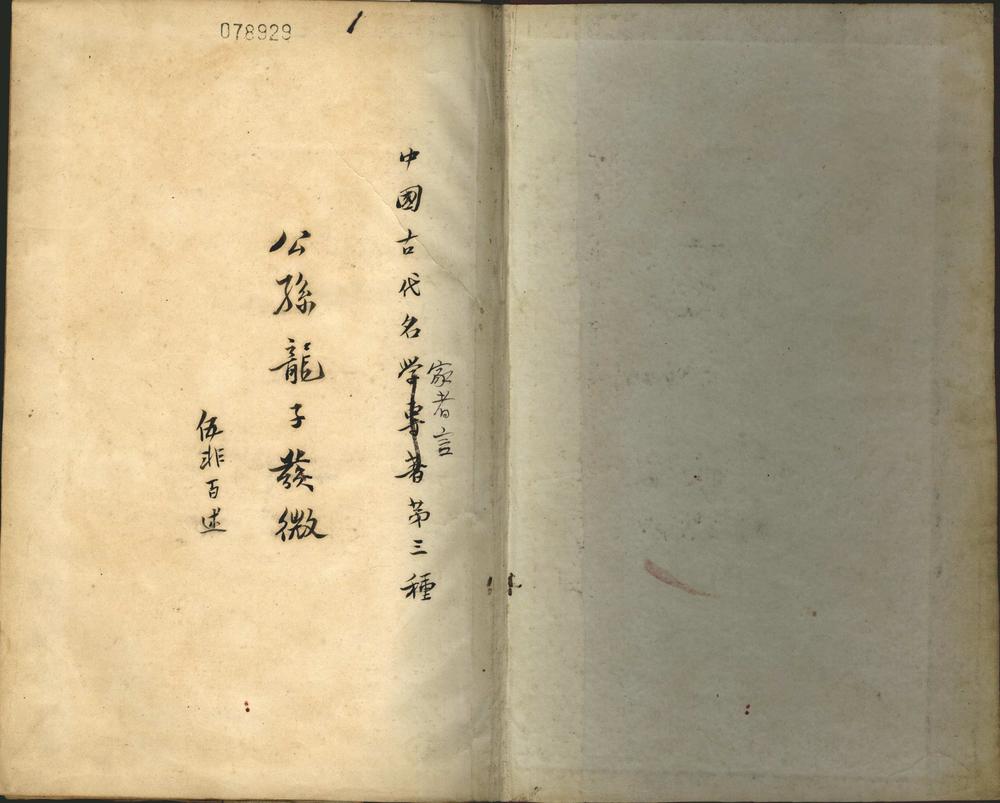 078929
1
中國古代名学專著第三種
家者言
公孫龍子發微
伍非百述